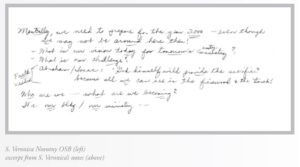 Mentally, we need to prepare for the year 2000 - even though
we may not be around here then!
- What is our vision today for tomorrow's ministry?
- What is our challenge?
Abraham/Isaac: "God himself will provide the sacrifice"
because all we can see is the firewood & the
Who are we - what are we becoming?
It's our / our ministry -
S. Veronica Novotny OSB (left)
excerpt from S. Veronica's notes (above)